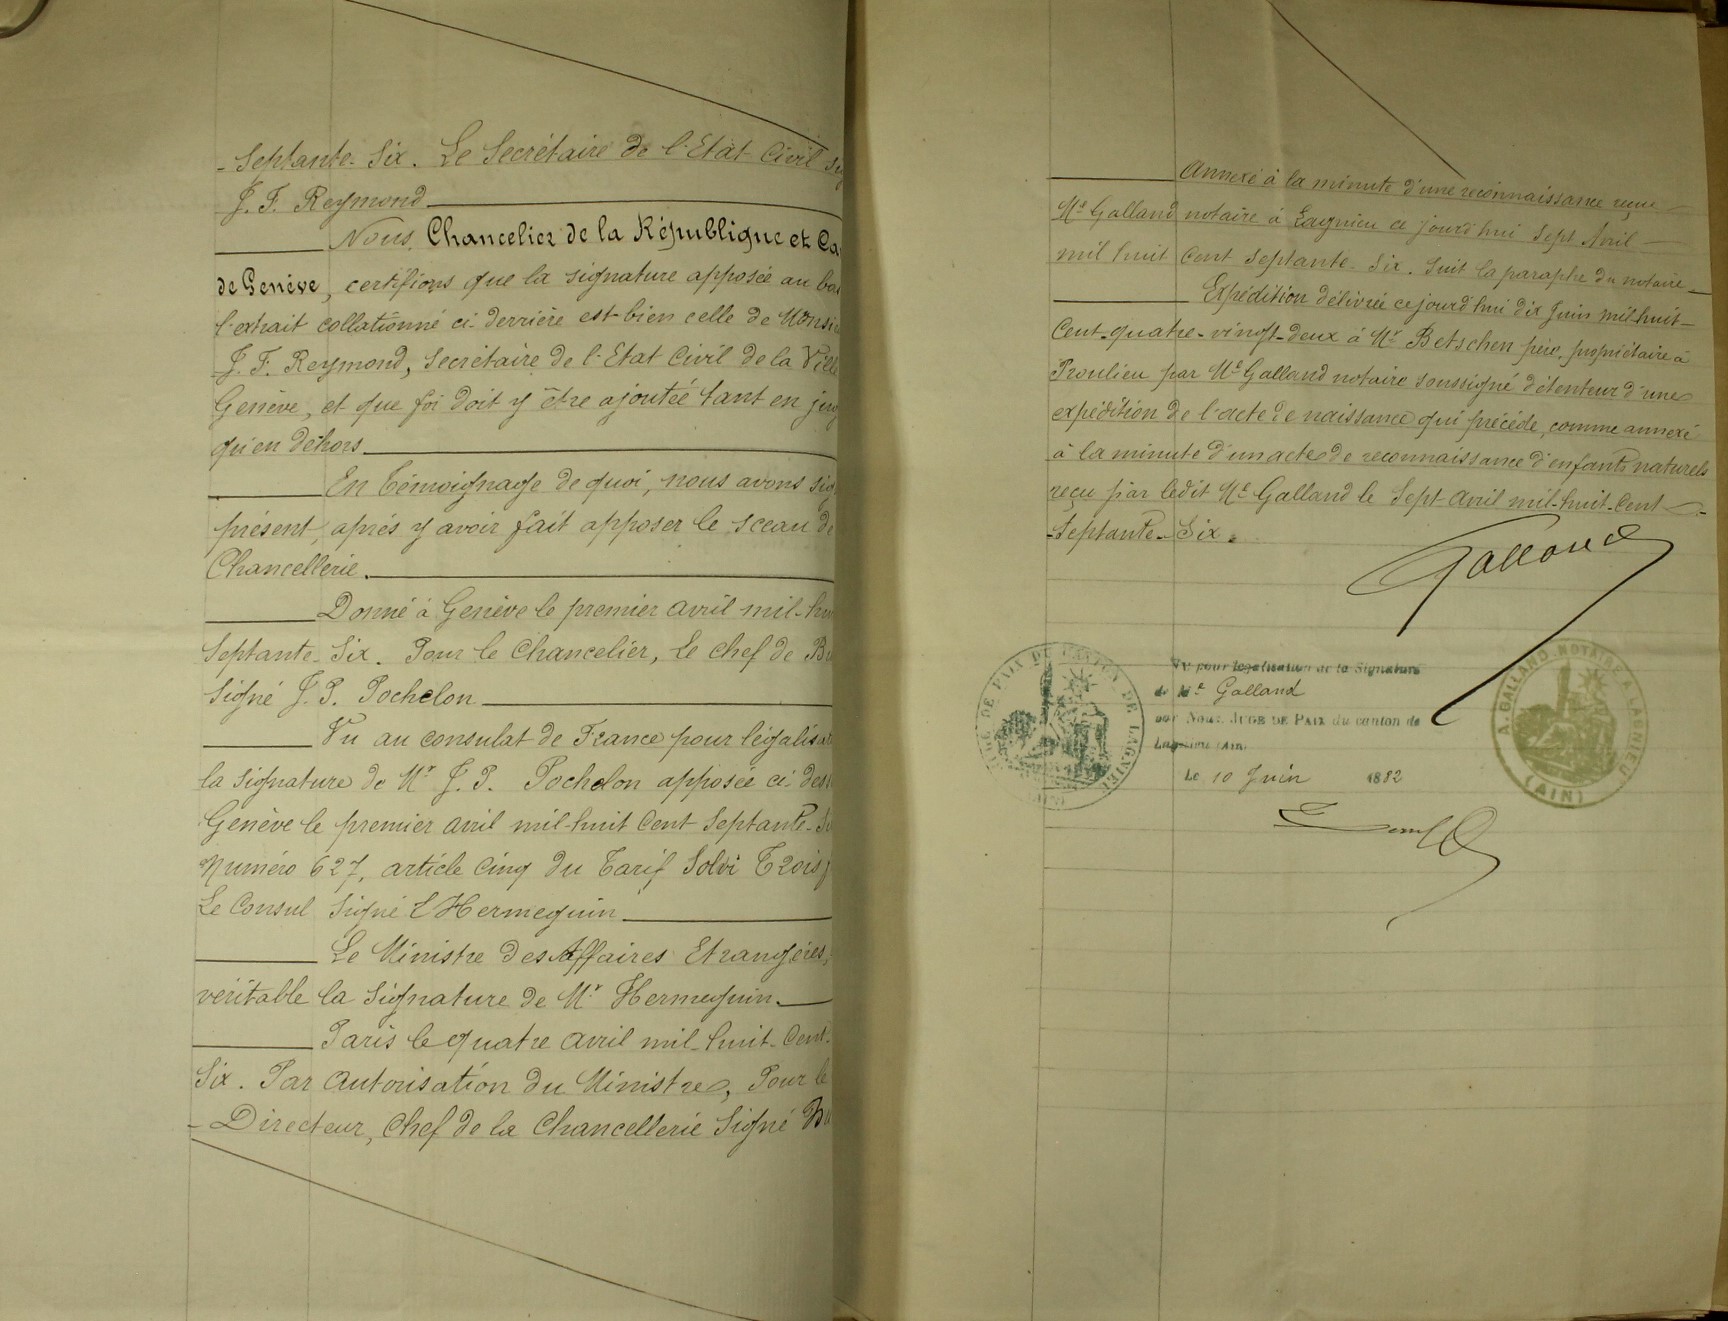 - Septante-Six. Le Secrétaire de l'Etat Civil
J. F. Reymond
Nous, Chancelier de la République et Ca
de Genève, certifions que la signature apposée au bas
l'extrait collationné ci-derrière est bien celle de Monsi
J. F. Reymond, Secrétaire de l'Etat Civil de la Ville
Genève, et que foi doit y être ajoutée tant en jug
qu'en dehors
En témoignage de quoi, nous avons sig
présent, après y avoir fait apposer le sceau de
Chancellerie.
Donné à Genève le premier avril mil-hui
Septante-Six. Pour le Chancelier, Le Chef de Bu
Signé J. P. Pochelon
Vu au consulat de France pour légalisat
la signature de Mr J. P. Pochelon apposée ci-des
Genève le premier avril mil-huit Cent Septante-Si
Numéro 627, article cinq du Tarif Solvi Trois f
Le Consul Signé L'Hermequin
Le Ministre des Affaires Etrangères,
véritable la signature de Mr Hermequin
Paris le quatre avril mil-huit-Cent-
Six. Par autorisation du Ministre, Pour le
- Directeur, Chef de la Chancellerie Signé
Annexé à la minute d'une reconnaissance reçue
Me Galland notaire à Lagnieu ce jourd'hui Sept Avril
mil huit Cent septante-Six. Suit la paraphe du notaire
Expédition délivrée cejourd'hui dix Juin mil-huit-
Cent-quatre-vingt-deux à Mr Betschen père, propriétaire à
Proulieu par Me Galland notaire soussigné détenteur d'une
expédition de l'acte de naissance qui précède, comme annexé
à la minute d'un acte de reconnaissance d'enfants naturels
reçu par ledit Me Galland le Sept avril mil-huit-Cent
-Septante-Six.
Galland
JUGE DE PAIX DU CANTON DE LAGNIEU
(AIN)
Vu pour légalisation de la Signature
de Me Galland
par Nous JUGE DE PAIX du canton de
Lagnieu (Ain)
Le 10 Juin 1882
A. GALLAND NOTAIRE A LAGNIEU
(AIN)